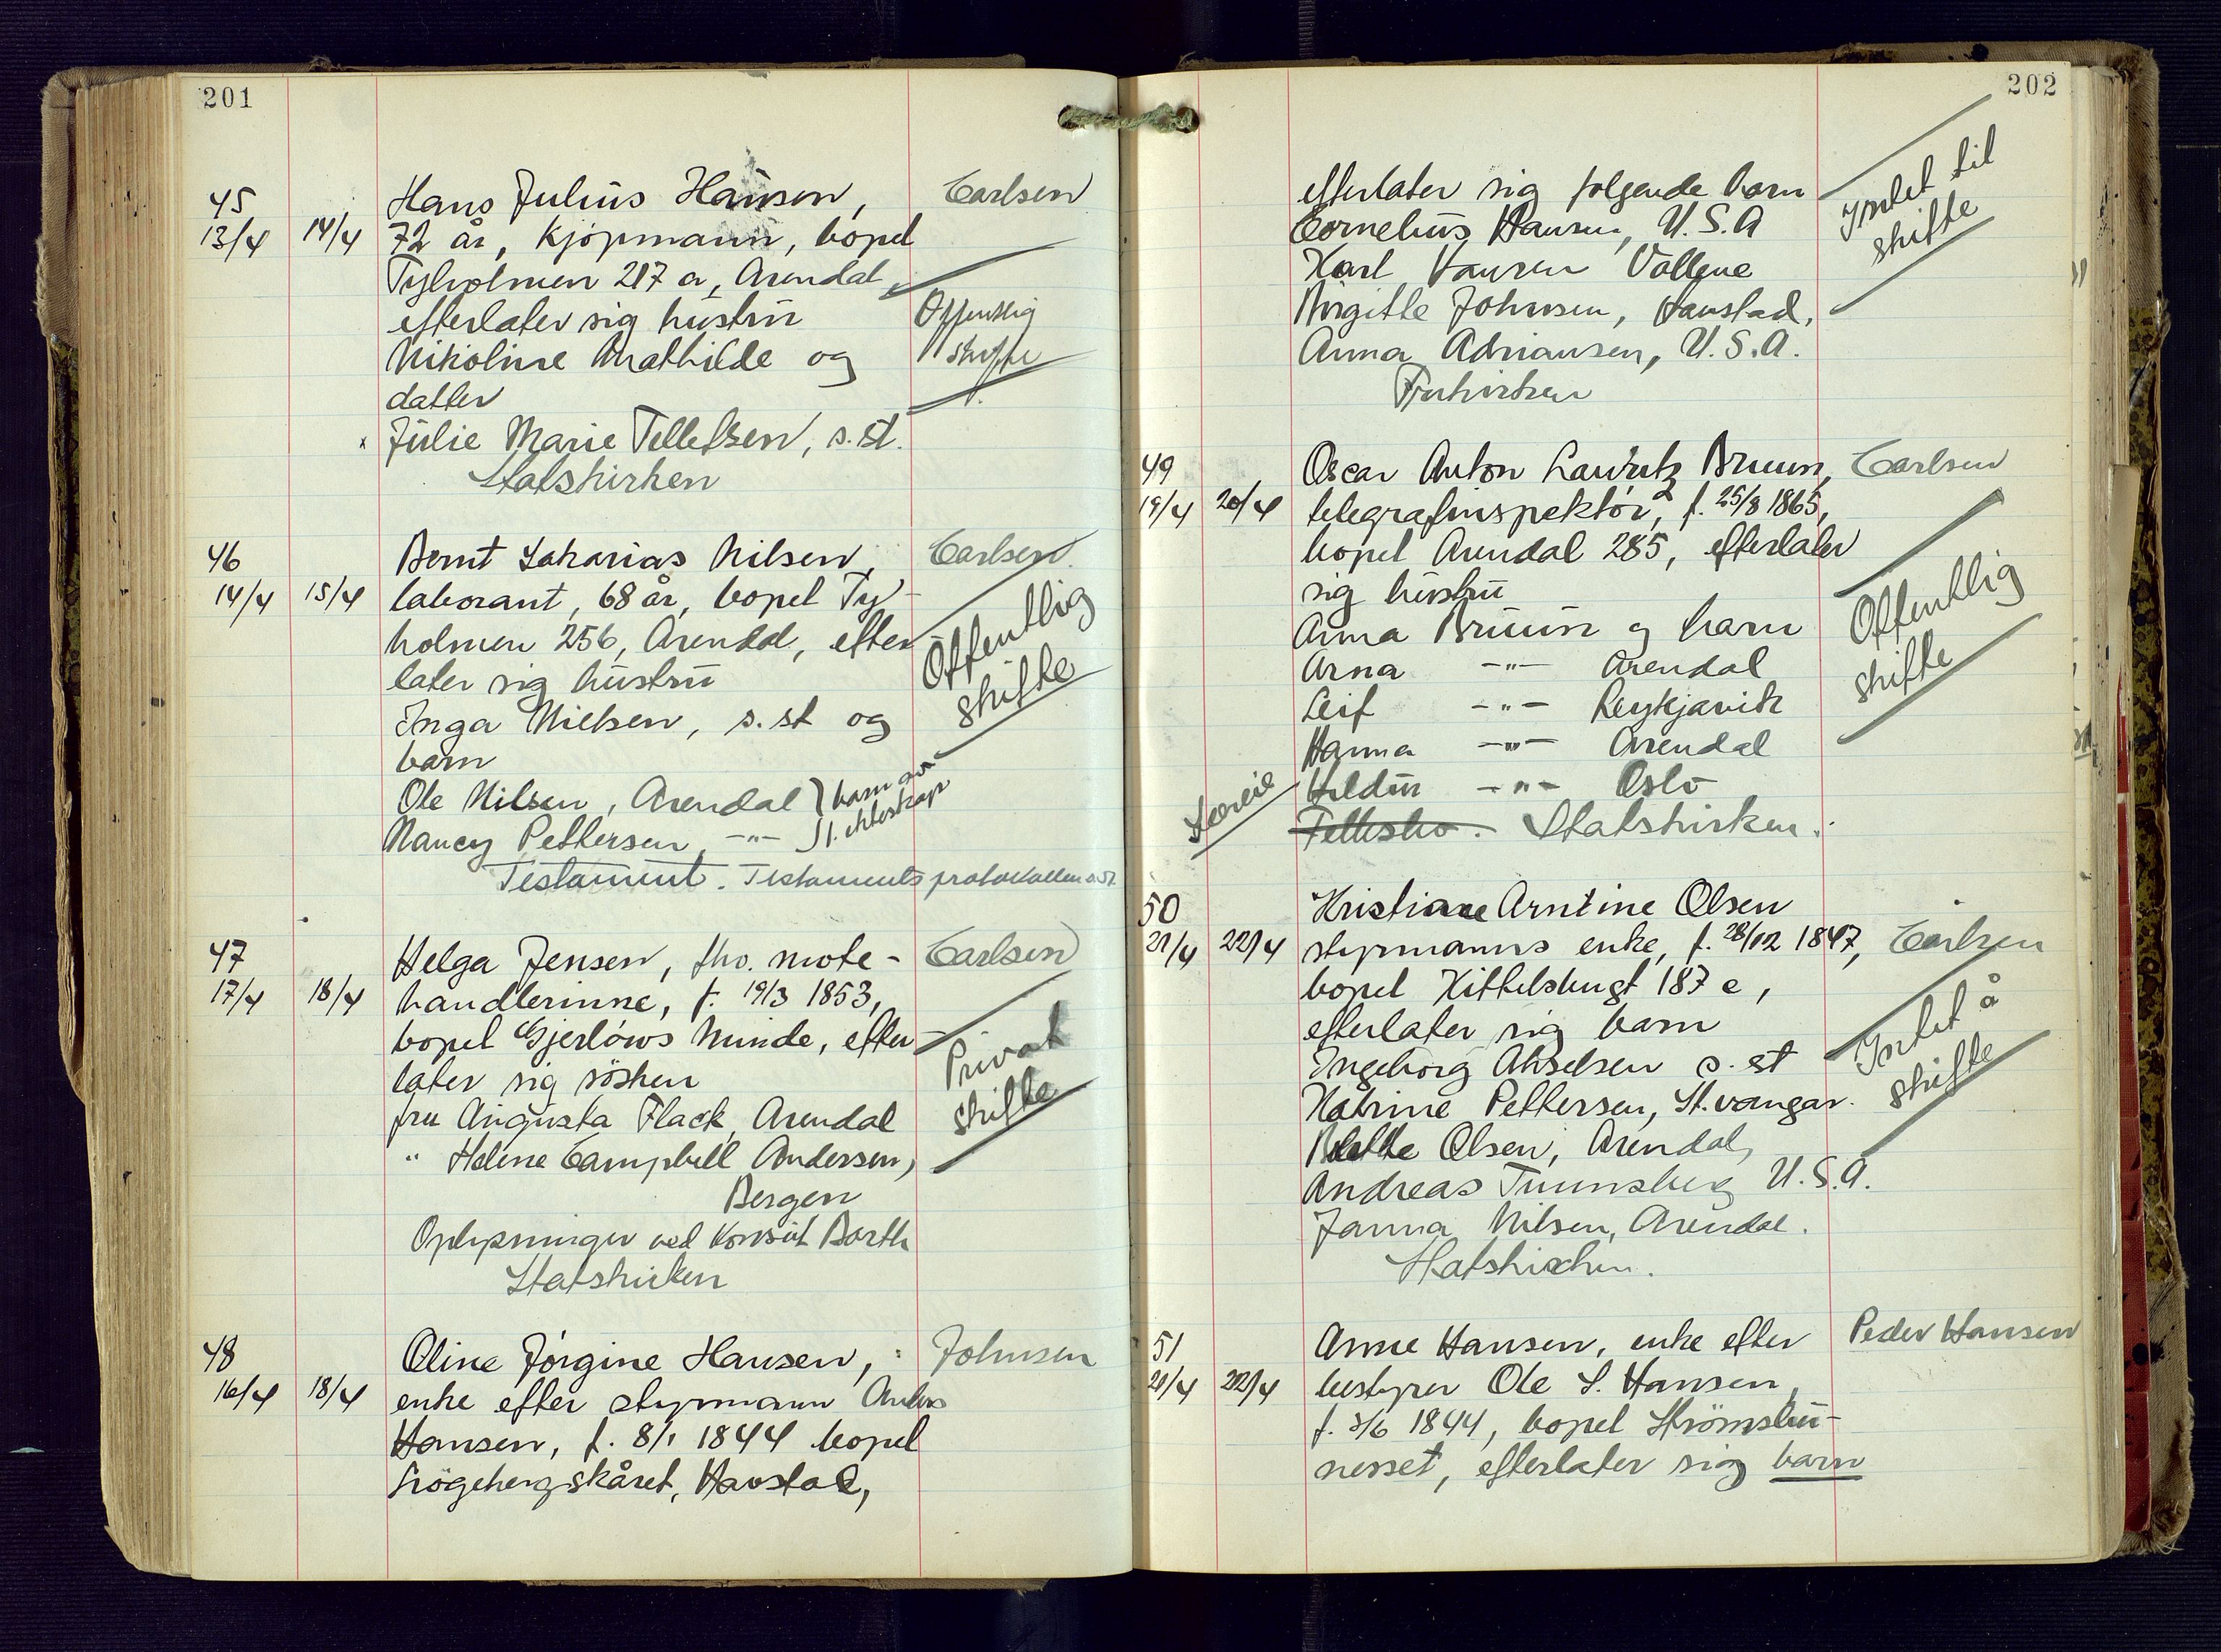 201
45
13/4 14/4
Hans Julius Hansen, Carlsen
72 år, kjøpmann, bopel
Tyholmen 217 a, Arendal,
efterlater sig hustru Offentlig
Nikoline Mathilde og skifte
datter
x Julie Marie Tellefsen, s. st.
Statskirken
46
14/4 15/4
Bernt Sakarias Nilsen, Carlsen
laborant, 68 år, bopel Ty-
holmen 256, Arendal, efter Offentlig
later sig hustru skifte
Inga Nielsen, s. st og
barn
Ole Nilsen, Arendal } barn av
Nancy Pettersen, -"- } 1. ekteskap
Testament. Testamentsprotokollen
47
17/4 18/4
Helga Jensen, fhv. mote- Carlsen
handlerinne, f. 19/3 1853,
bopel Gjerløws Minde, efter- Privat
later sig søsken skifte
fru Augusta Flack, Arendal
" Helene Campbell Andersen,
Bergen
Oplysninger ved Konsul Barth
Statskirken
48
16/4 18/4
Oline Jørgine Hansen, Johnsen
enke efter styrmann Anders
Hansen, f. 8/1 1844 bopel
Havstad,
202
efterlater sig følgende barn Intet til
Cornelius Hansen, U.S.A skifte
Karl Hansen Vollene
Birgitte Johnsen, Havstad,
Anna Adriansen, U.S.A.
Frikirken
49
19/4 20/4
Oscar Anton Lauritz Bruun, Carlsen
telegrafinspektør, f. 25/8 1865,
bopel Arendal 285, efterlater
sig hustru Offentlig
Anna Bruun og barn skifte
Arna -"- Arendal
Leif -"- Reykjavik
Hanna -"- Arendal
Haldur -"- Oslo
Statskirken.
50
21/4 22/4
Kristiane Arntine Olsen
styrmanns enke, f. 28/12 1847, Carlsen
bopel Kittelsbugt 187 e,
efterlater sig barn Intet å
Ingeborg Akselsen s. st skifte
Katrine Pettersen, St.vangar.
Olsen, Arendal,
Andreas Tuunsberg U.S.A.
Janna Nilsen, Arendal.
Statskirken.
51
21/4 22/4
Anne Hansen, enke efter Peder Hansen
bestyrer Ole S. Hansen,
f. 3/6 1844, bopel Strømsbu-
nesset, efterlater sig barn